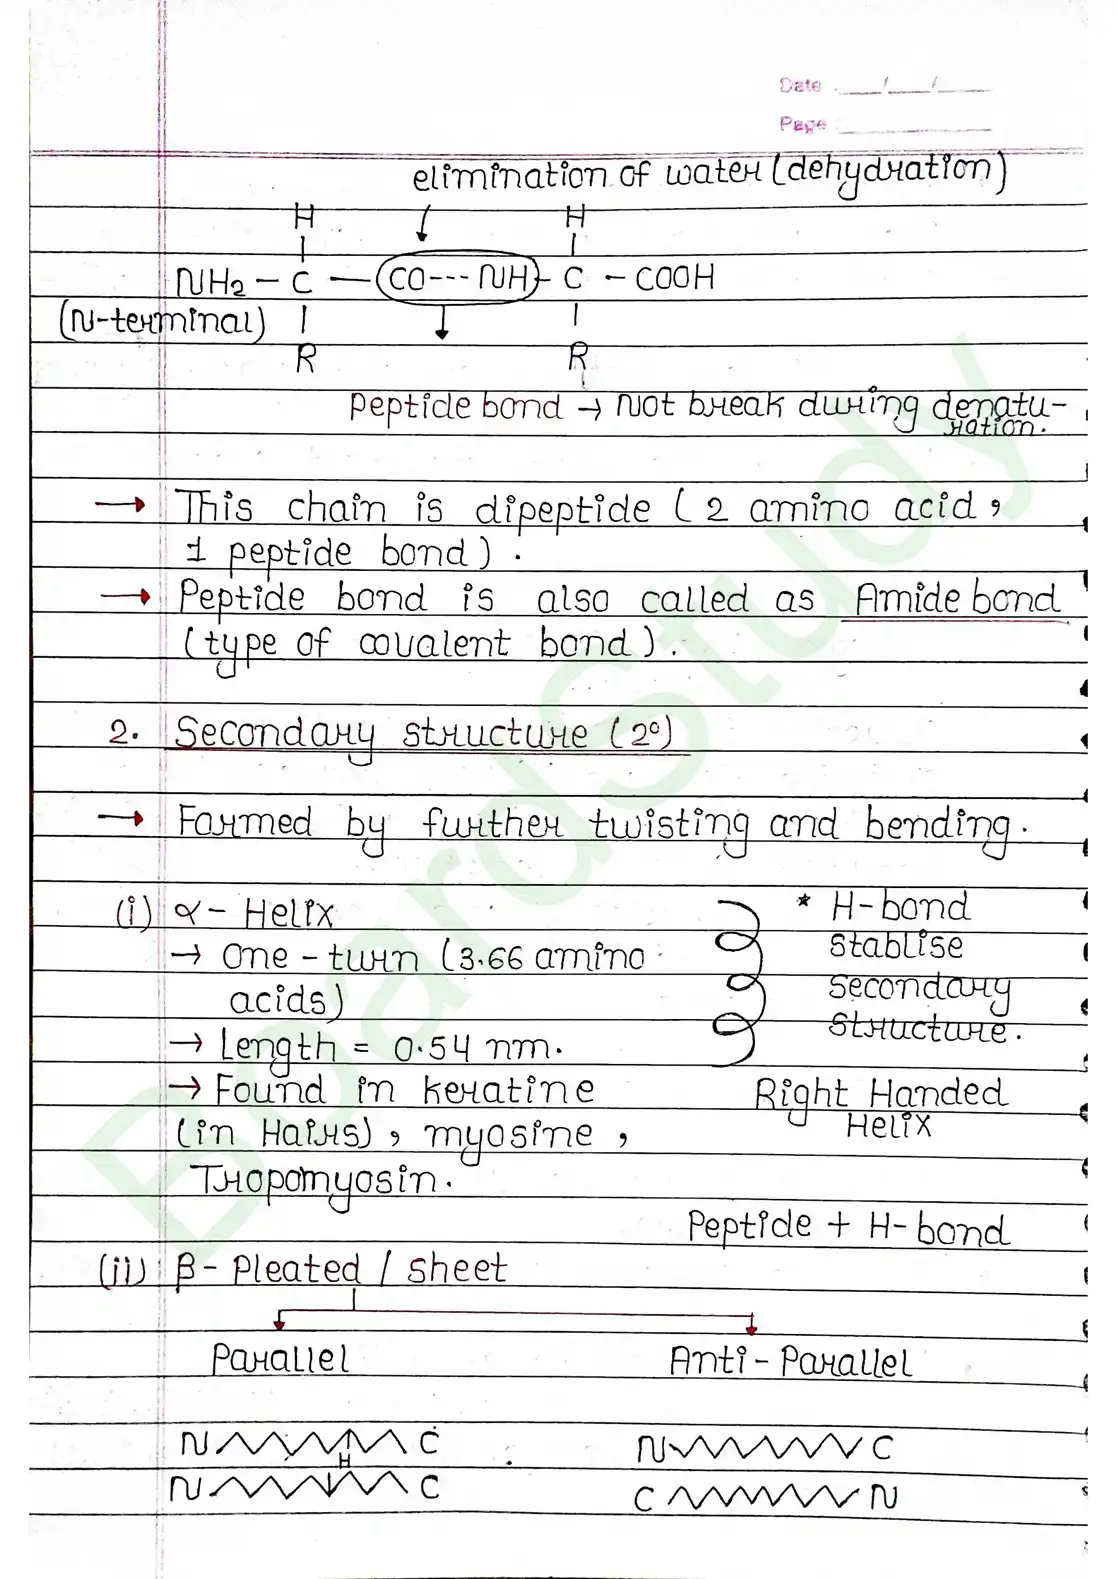 Date ___/___/___
Page ___
elimination of water (dehydration)
H H
NH2 – C — CO --- NH – C – COOH
(N-terminal)
R R
Peptide bond → Not break during denatu-
ration.
→ This chain is dipeptide ( 2 amino acid ,
1 peptide bond ) .
→ Peptide bond is also called as Amide bond
( type of covalent bond ) .
2. Secondary structure ( 2° )
→ Formed by further twisting and bending .
(i) α - Helix
→ One - turn ( 3.66 amino
acids )
→ Length = 0.54 nm.
→ Found in keratine
( in Hairs) , myosine ,
Tropomyosin .
* H-bond
stablise
secondary
structure .
Right Handed
Helix
Peptide + H-bond
(ii) β - Pleated / sheet
Parallel Anti - Parallel
N C N C
H
N C C N
BoardStudy